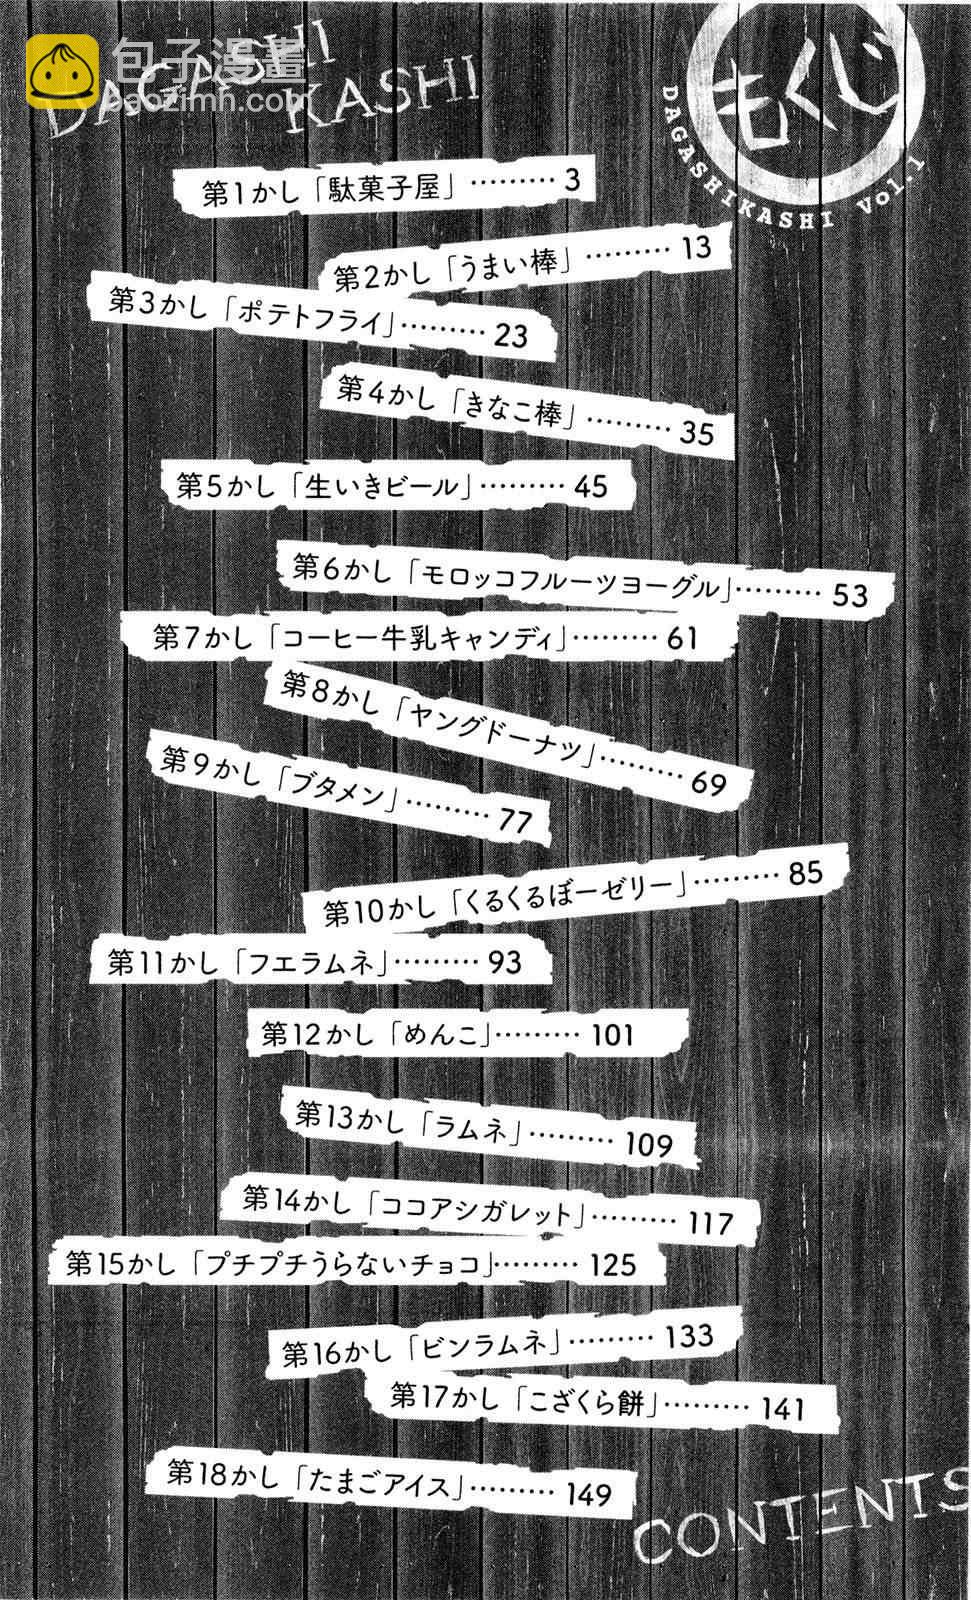 包子漫畫
baozimh.com
DAGASHI
KASHI
もくじ
DAGASHIKASHI Vol.1
第1かし「駄菓子屋」………3
第2かし「うまい棒」………13
第3かし「ポテトフライ」………23
第4かし「きなこ棒」………35
第5かし「生いきビール」………45
第6かし「モロッコフルーツヨーグル」………53
第7かし「コーヒー牛乳キャンディ」………61
第8かし「ヤングドーナツ」………69
第9かし「ブタメン」………77
第10かし「くるくるぼーゼリー」………85
第11かし「フエラムネ」………93
第12かし「めんこ」………101
第13かし「ラムネ」………109
第14かし「ココアシガレット」………117
第15かし「プチプチうらないチョコ」………125
第16かし「ビンラムネ」………133
第17かし「こざくら餅」………141
第18かし「たまごアイス」………149
CONTENTS